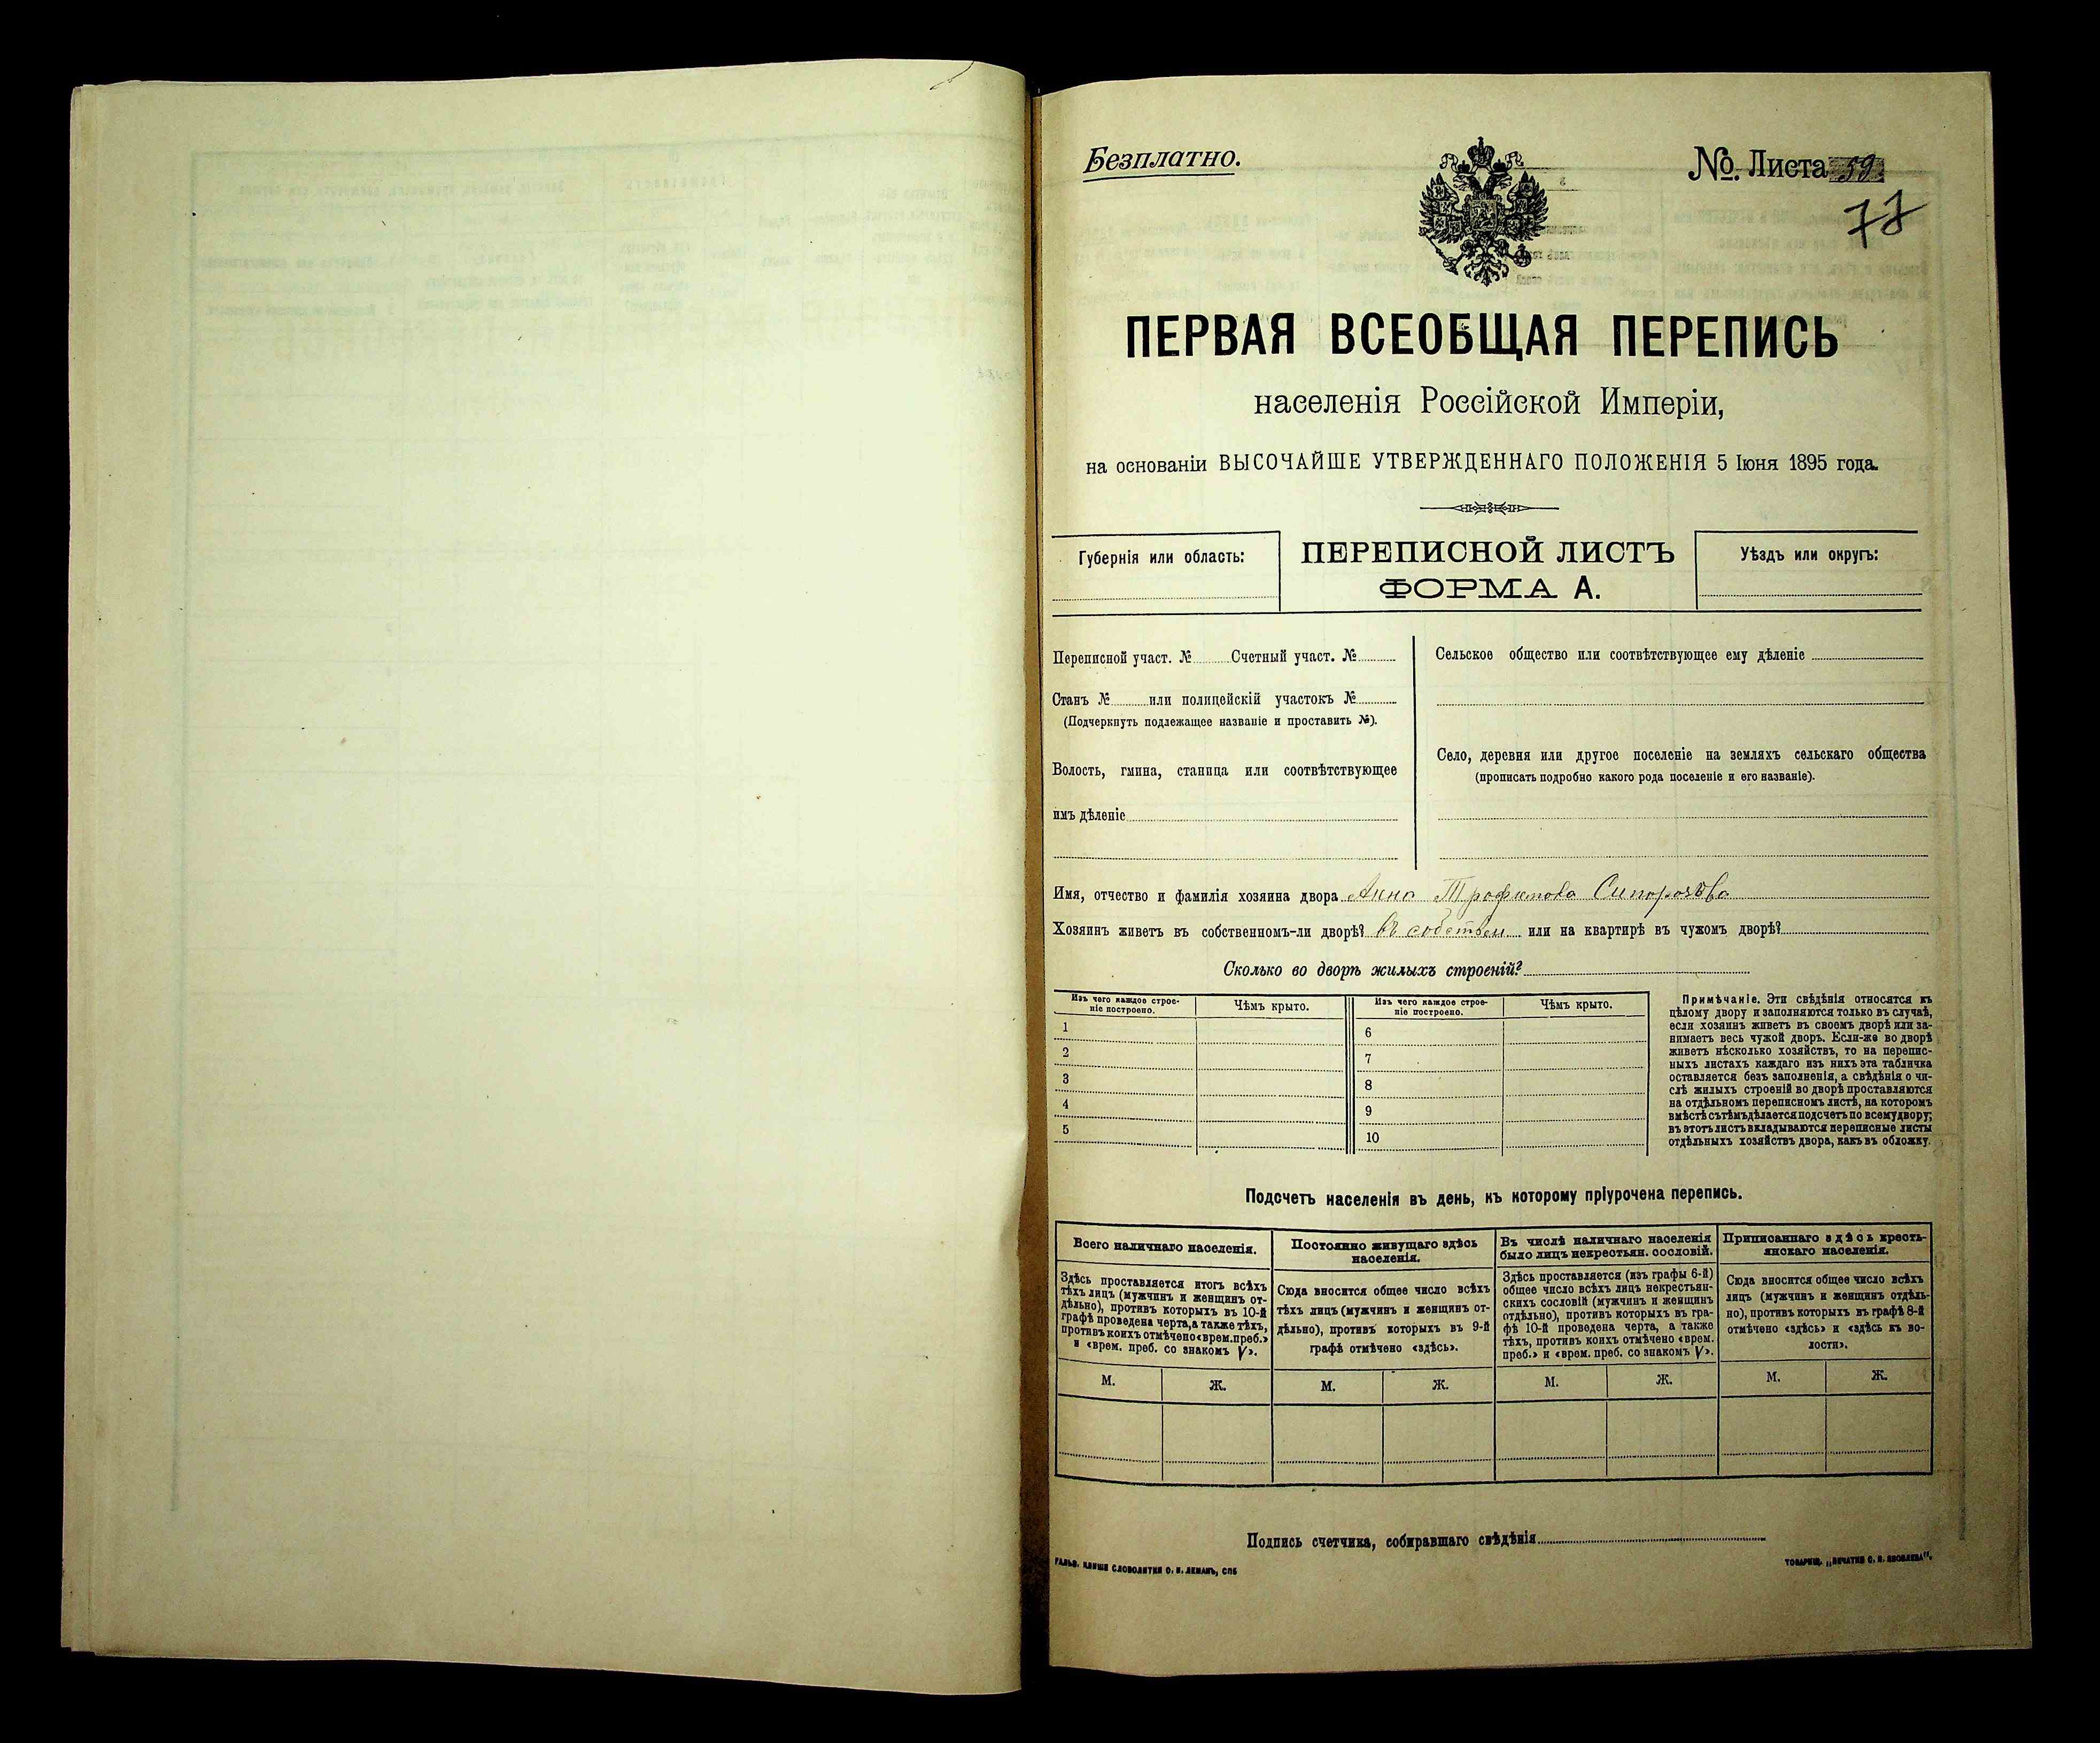 Безплатно.
№. Листа 59
77
ПЕРВАЯ ВСЕОБЩАЯ ПЕРЕПИСЬ
населенія Россійской Имперіи,
на основаніи ВЫСОЧАЙШЕ УТВЕРЖДЕННАГО ПОЛОЖЕНІЯ 5 Іюня 1895 года.
Губернія или область:
ПЕРЕПИСНОЙ ЛИСТЪ
ФОРМА А.
Уѣздъ или округъ:
Переписной участ. № Счетный участ. №
Станъ № или полицейскій участокъ №
(Подчеркнуть подлежащее названіе и проставить №).
Волость, гмина, станица или соотвѣтствующее
имъ дѣленіе
Сельское общество или соотвѣтствующее ему дѣленіе
Село, деревня или другое поселеніе на земляхъ сельскаго общества
(прописать подробно какого рода поселеніе и его названіе).
Имя, отчество и фамилія хозяина двора Анна Трофимова
Хозяинъ живетъ въ собственномъ-ли дворѣ? въ собствен или на квартирѣ въ чужомъ дворѣ?
Сколько во дворѣ жилыхъ строеній?
Изъ чего каждое строе-
ніе построено.
Чѣмъ крыто.
1
2
3
4
5
Изъ чего каждое строе-
ніе построено.
Чѣмъ крыто.
6
7
8
9
10
Примѣчаніе. Эти свѣдѣнія относятся къ
цѣлому двору и заполняются только въ случаѣ,
если хозяинъ живетъ въ своемъ дворѣ или за-
нимаетъ весь чужой дворъ. Если-же во дворѣ
живетъ нѣсколько хозяйствъ, то на перепис-
ныхъ листахъ каждаго изъ нихъ эта табличка
оставляется безъ заполненія, а свѣдѣнія о чи-
слѣ жилыхъ строеній во дворѣ проставляются
на отдѣльномъ переписномъ листѣ, на которомъ
вмѣстѣ съ тѣмъ дѣлается подсчетъ по всему двору;
въ этотъ листъ вкладываются переписные листы
отдѣльныхъ хозяйствъ двора, какъ въ обложку.
Подсчетъ населенія въ день, къ которому пріурочена перепись.
Всего наличнаго населенія.
Здѣсь проставляется итогъ всѣхъ
тѣхъ лицъ (мужчинъ и женщинъ от-
дѣльно), противъ которыхъ въ 10-й
графѣ проведена черта, а также тѣхъ,
противъ коихъ отмѣчено «врем. преб.»
и «врем. преб. со знакомъ V».
М. Ж.
Постоянно живущаго здѣсь
населенія.
Сюда вносится общее число всѣхъ
тѣхъ лицъ (мужчинъ и женщинъ от-
дѣльно), противъ которыхъ въ 9-й
графѣ отмѣчено «здѣсь».
М. Ж.
Въ числѣ наличнаго населенія
было лицъ некрестьян. сословій.
Здѣсь проставляется (изъ графы 6-й)
общее число всѣхъ лицъ некрестьян-
скихъ сословій (мужчинъ и женщинъ
отдѣльно), противъ которыхъ въ гра-
фѣ 10-й проведена черта, а также
тѣхъ, противъ коихъ отмѣчено «врем.
преб.» и «врем. преб. со знакомъ V».
М. Ж.
Приписаннаго здѣсь кресть-
янскаго населенія.
Сюда вносится общее число всѣхъ
лицъ (мужчинъ и женщинъ отдѣль-
но), противъ которыхъ въ графѣ 8-й
отмѣчено «здѣсь» и «здѣсь къ во-
лости».
М. Ж.
Подпись счетчика, собиравшаго свѣдѣнія
ГАЛЬВ. КЛИШЕ СЛОВОЛИТНИ О. И. ЛЕМАНЪ, СПБ
ТОВАРИЩ. „ПЕЧАТНЯ С. П. ЯКОВЛЕВА".